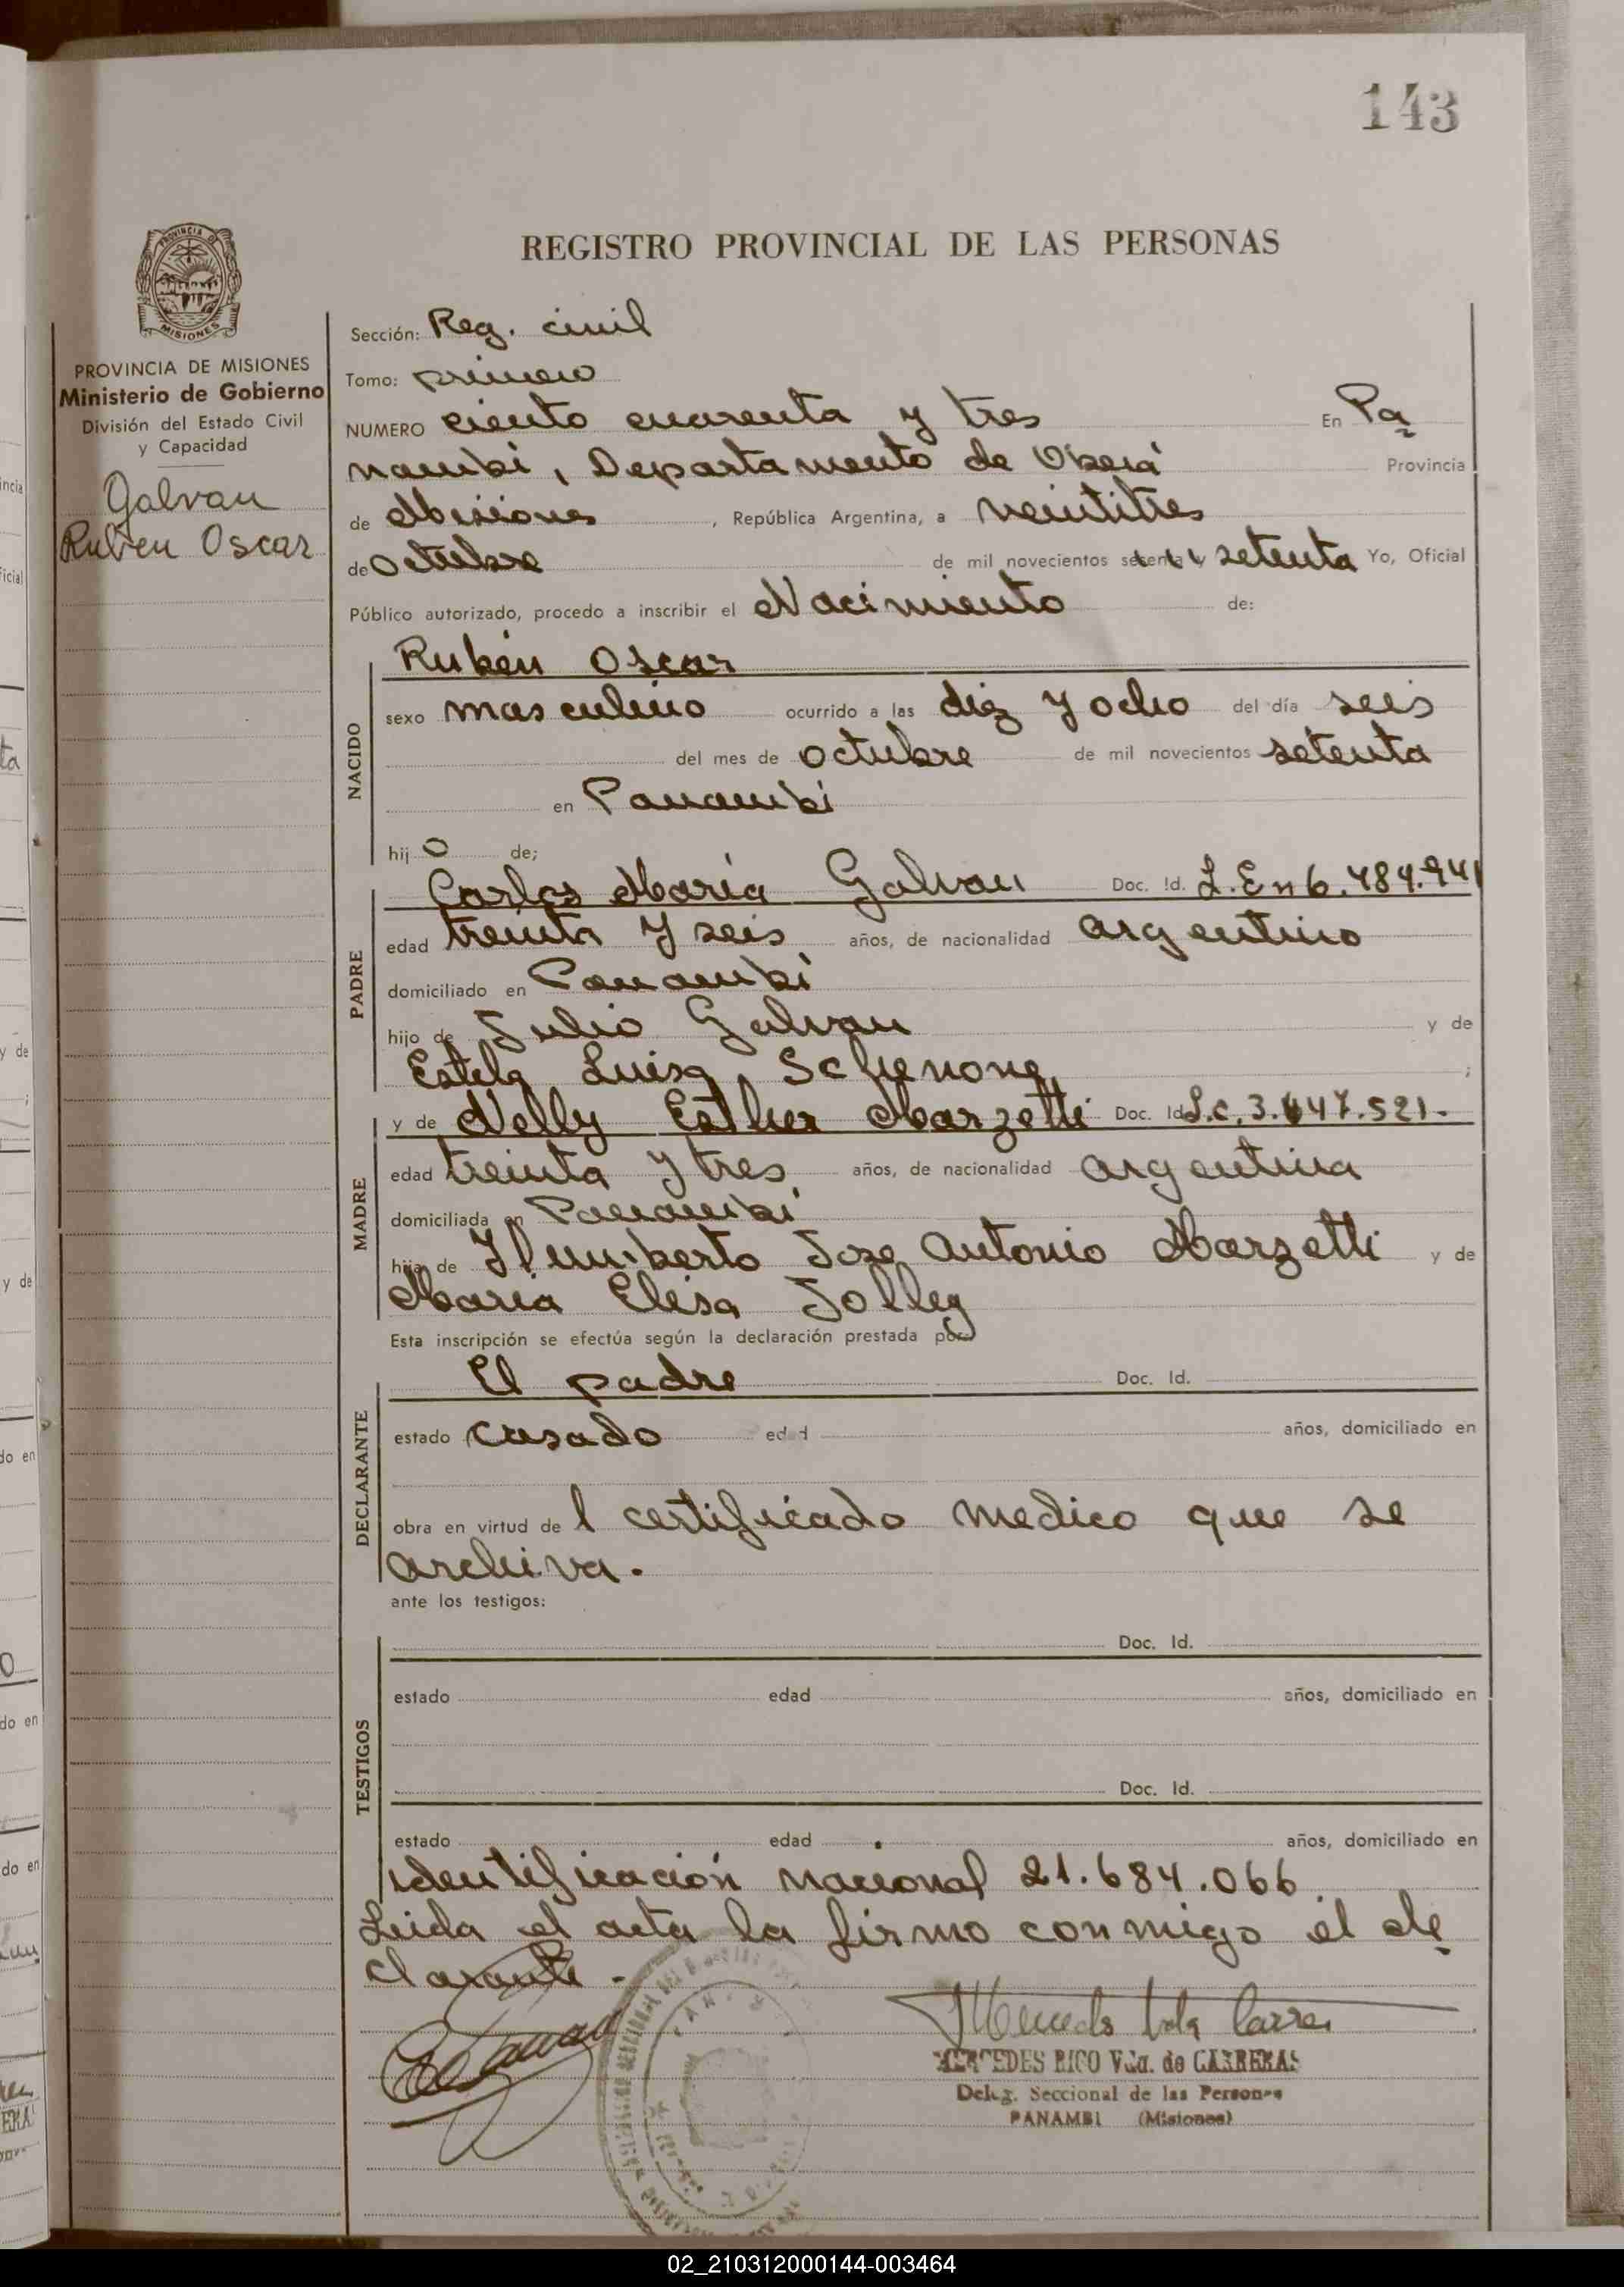 143
REGISTRO PROVINCIAL DE LAS PERSONAS
PROVINCIA DE MISIONES
Ministerio de Gobierno
División del Estado Civil
y Capacidad
Galvan
Ruben Oscar
Sección: Reg. civil
Tomo: primero
NUMERO ciento cuarenta y tres En Pa
nambí, Departamento de Oberá Provincia
de Misiones, República Argentina, a veintitres
de Octubre de mil novecientos setenta y setenta Yo, Oficial
Público autorizado, procedo a inscribir el Nacimiento de:
NACIDO
Rubén Oscar
sexo masculino ocurrido a las diez y ocho del día seis
del mes de octubre de mil novecientos setenta
en Panambí
hijo de;
PADRE
Carlos María Galvan Doc. Id. L.E nº 6.484.941
edad treinta y seis años, de nacionalidad argentino
domiciliado en Panambí
hijo de Julio Galvan y de
Estela Luisa Schenone;
MADRE
y de Nelly Esther Marzetti Doc. Id L.C. 3.647.521.
edad treinta y tres años, de nacionalidad argentina
domiciliada en Panambí
hija de Humberto Jose Antonio Marzetti y de
Maria Elisa Jolley
Esta inscripción se efectúa según la declaración prestada por
DECLARANTE
El padre Doc. Id.
estado casado edad años, domiciliado en
obra en virtud del certificado medico que se
archiva.
ante los testigos:
TESTIGOS
Doc. Id.
estado edad años, domiciliado en
Doc. Id.
estado edad años, domiciliado en
identificación nacional 21.684.066
Leida el acta la firmo conmigo el de
clarante.
MERCEDES RICO Vda. de CARRERAS
Deleg. Seccional de las Personas
PANAMBI (Misiones)
02_210312000144-003464